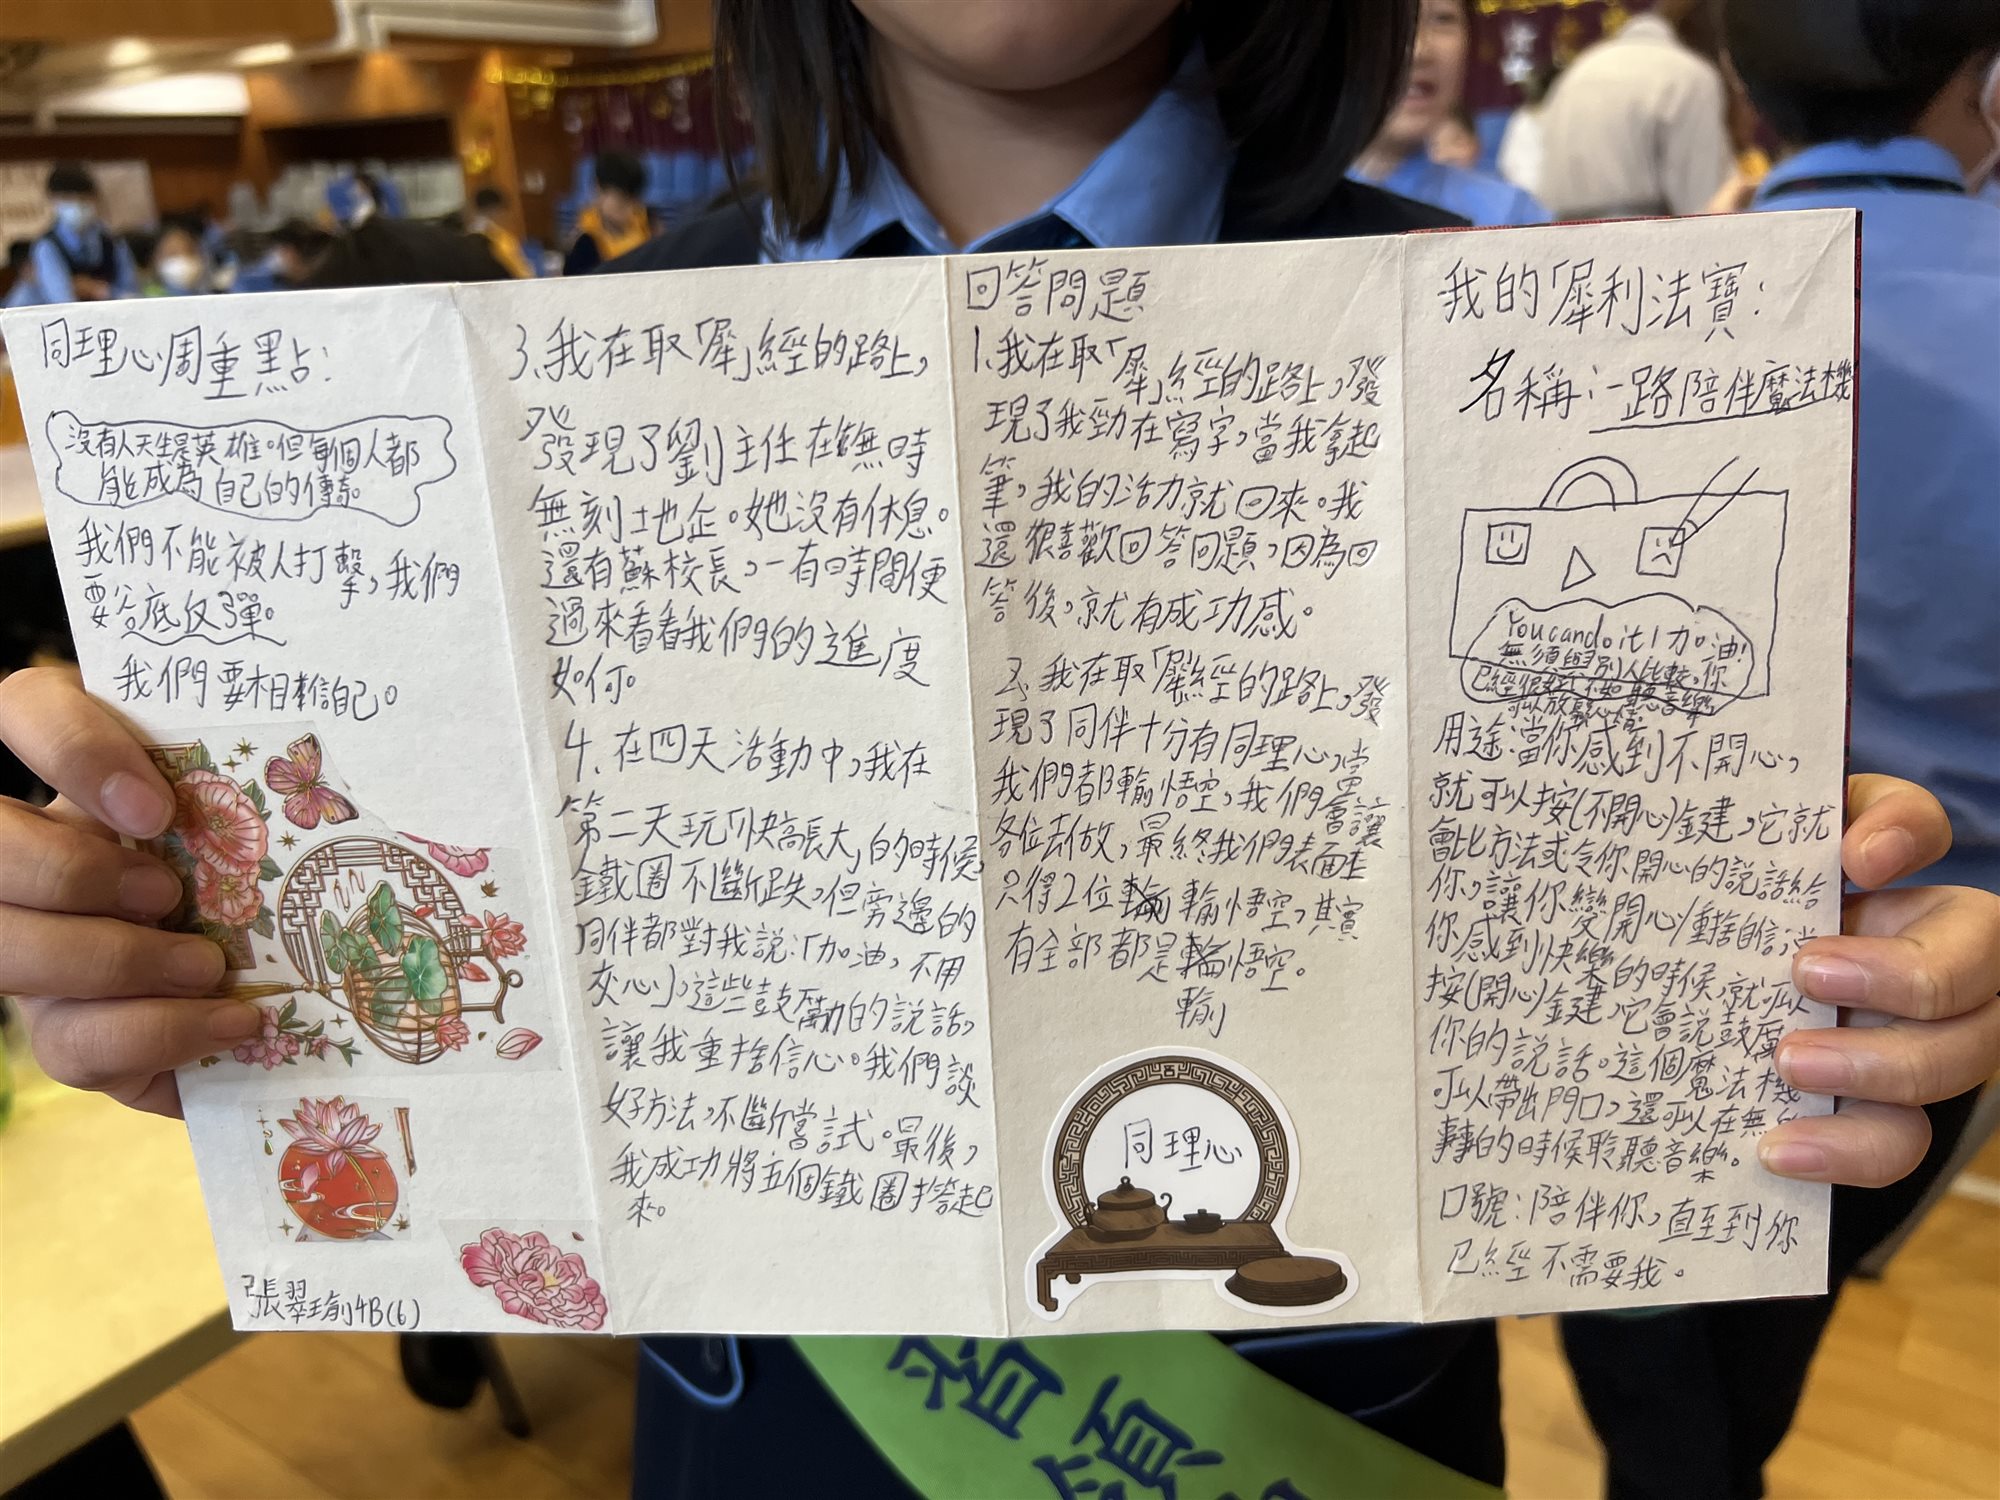 同理心周重點：
沒有人天生是英雄。但每個人都
能成為自己的傳奇。
我們不能被人打擊，我們
要谷底反彈。
我們要相信自己。
張翠瑜4B(6)
3、我在取「犀」經的路上，
發現了劉主任在無時
無刻土地企。她沒有休息。
還有蘇校長，一有時間便
過來看看我們的進度
如何。
4、在四天活動中，我在
第二天玩「快高長大」的時候，
鐵圈不斷跌，但旁邊的
同伴都對我說：「加油，不用
灰心」，這些鼓勵的說話，
讓我重捨信心。我們談
好方法，不斷嘗試。最後，
我成功將五個鐵圈拾起
來。
回答問題
1、我在取「犀」經的路上，發
現了我勁在寫字，當我拿起
筆，我的活力就回來。我
還很喜歡回答問題，因為回
答後，就有成功感。
2、我在取「犀」經的路上，發
現了同伴十分有同理心，當
我們都輸悟空，我們會讓
各位去做，最終我們表面上
只得2位輸悟空，其實
有全部都是輪悟空。
輸
同理心
我的「犀利法寶：
名稱：一路陪伴魔法機
You can do it! 加油！
無須與別人比較，你
已經很好！不如聽音樂
可以放鬆心情
用途：當你感到不開心，
就可以按(不開心)鍵，它就
會比方法或令你開心的說話給
你，讓你變開心/重捨自信；當
你感到快樂的時候，就可以
按(開心)鍵，它會說鼓勵
你的說話。這個魔法機
可以帶出門口，還可以在無所
事事的時候聆聽音樂。
口號：陪伴你，直至到你
已經不需要我。